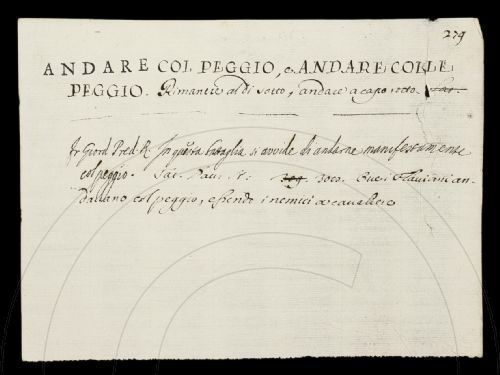 279
ANDARE COL PEGGIO, e ANDARE COLLE
PEGGIO. Rimanere al di sotto, andare a capo rotto.
Fr Giord Pred. R. In questa battaglia si avvide di andarne manifestamente
col peggio. Dav. 3020. Flaviani an-
davano col peggio, essendo i nemici a cavaliere